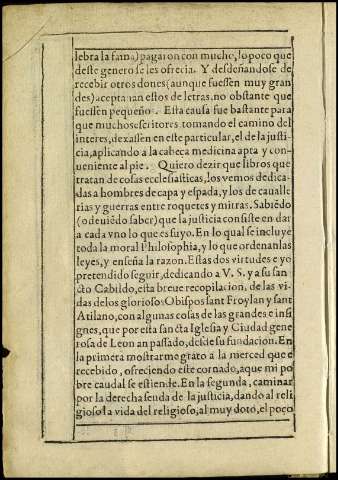 lebra la fama) pagaron con mucho, lo poco que
deste genero se les ofrecia. Y desdeñandose de
recebir otros dones (aunque fuessen muy gran
des) aceptauan estos de letras, no obstante que
fuessen pequeños. Esta causa fue bastante para
que muchos escritores tomando el camino del
interes, dexassen en este particular, el de la justi
cia, aplicando a la cabeça medicina apta y con-
ueniente al pie. Quiero dezir que libros que
tratan de cosas ecclesiasticas, los vemos dedica
das a hombres de capa y espada, y los de caualle
rias y guerras entre roquetes y mitras. Sabiẽdo
(o deuiẽdo saber) que la justicia consiste en dar
a cada vno lo que es suyo. En lo qual se incluye
toda la moral Philosophia, y lo que ordenan las
leyes, y enseña la razon. Estas dos virtudes e yo
pretendido seguir, dedicando a V. S. y a su san
cto Cabildo, esta breue recopilacion, de las vi
das de los gloriosos Obispos sant Froylan y sant
Atilano, con algunas cosas de las grandes e insi
gnes, que por esta sancta Iglesia y Ciudad gene
rosa de Leon an passado, desde su fundacion. En
la primera mostrarme grato a la merced que e
recebido, ofreciendo este cornado, a que mi po
bre caudal se estiende. En la segunda, caminar
por la derecha senda de la justicia, dando al reli
gioso la vida del religioso, al muy doto, el poco